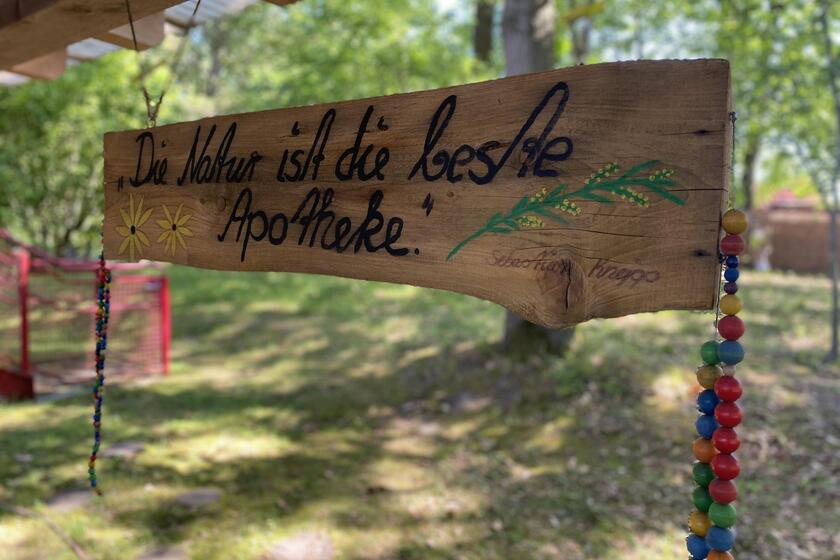 „Die Natur ist die beste
Apotheke.“
Sebastian Kneipp